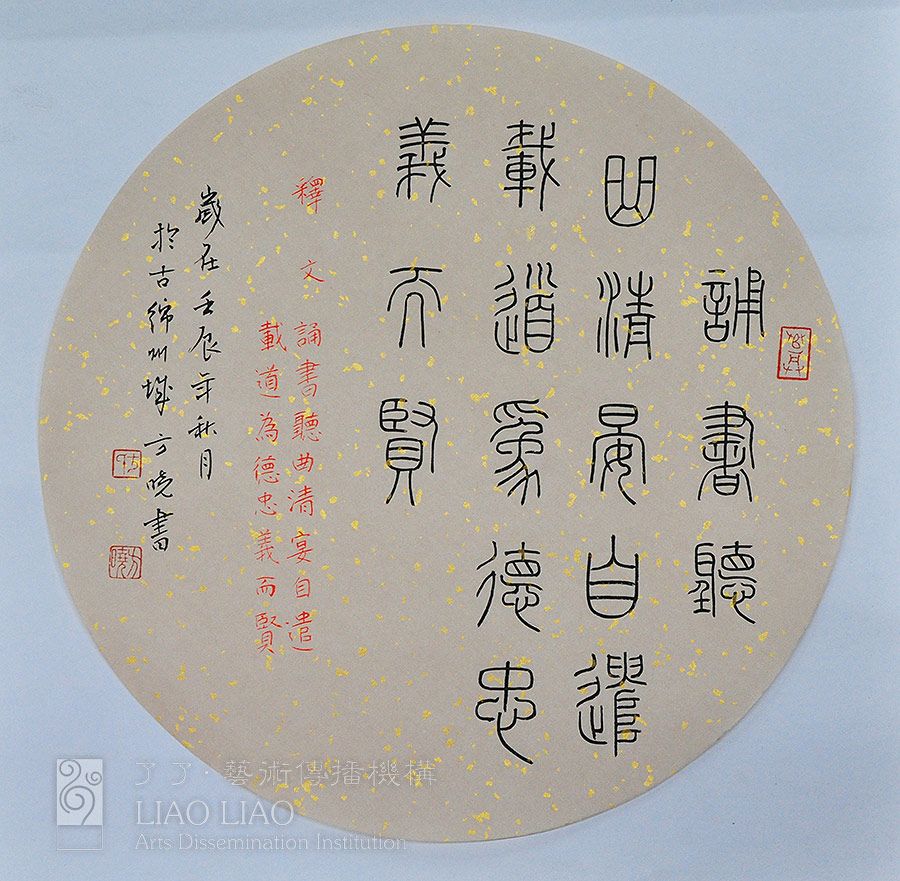 誦書聽
曲清宴自遣
載道為德忠
義而賢
釋文
誦書聽曲清宴自遣
載道為德忠義而賢
歲在壬辰年秋月
於古綿州城方曉書
方曉
了了·藝術傳播機構
LIAO LIAO
Arts Dissemination Institution